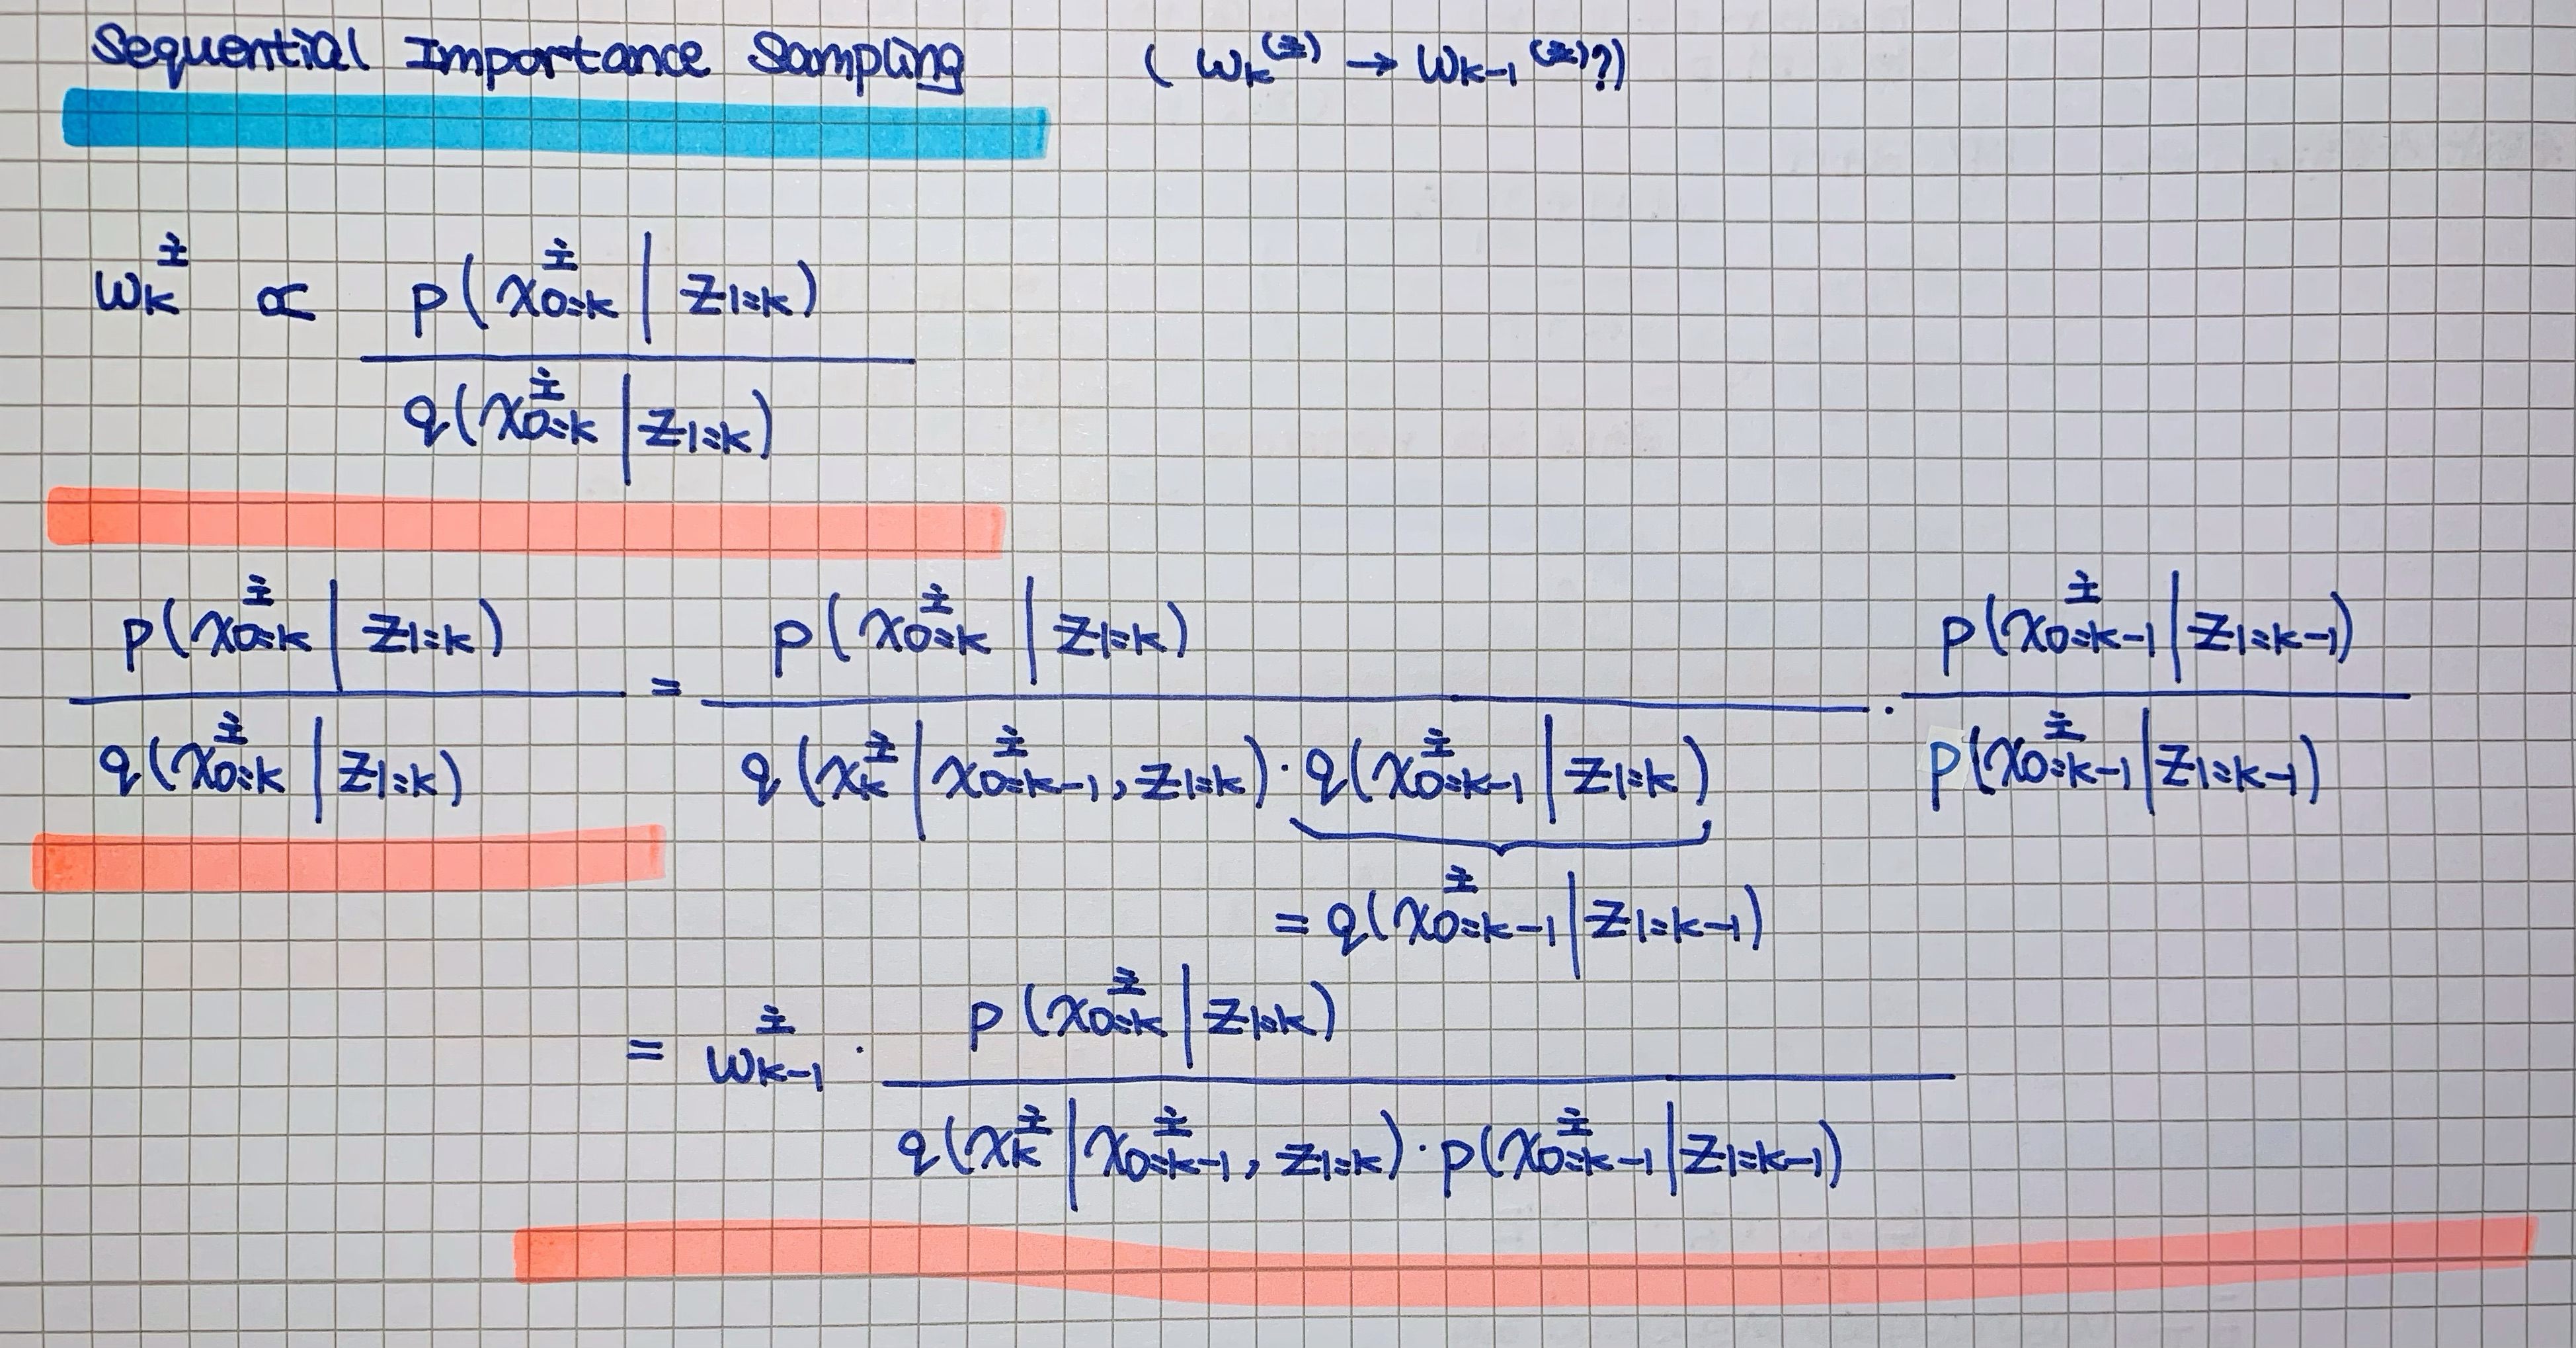 Sequential Importance Sampling ( ω_k^(i) → ω_{k-1}^(i) ?)
ω_k^i ∝ p(x_{0:k}^i | z_{1:k})
q(x_{0:k}^i | z_{1:k})
p(x_{0:k}^i | z_{1:k}) = p(x_{0:k}^i | z_{1:k}) · p(x_{0:k-1}^i | z_{1:k-1})
q(x_{0:k}^i | z_{1:k}) q(x_k^i | x_{0:k-1}^i, z_{1:k}) · q(x_{0:k-1}^i | z_{1:k}) p(x_{0:k-1}^i | z_{1:k-1})
= q(x_{0:k-1}^i | z_{1:k-1})
= ω_{k-1}^i · p(x_{0:k}^i | z_{1:k})
q(x_k^i | x_{0:k-1}^i, z_{1:k}) · p(x_{0:k-1}^i | z_{1:k-1})